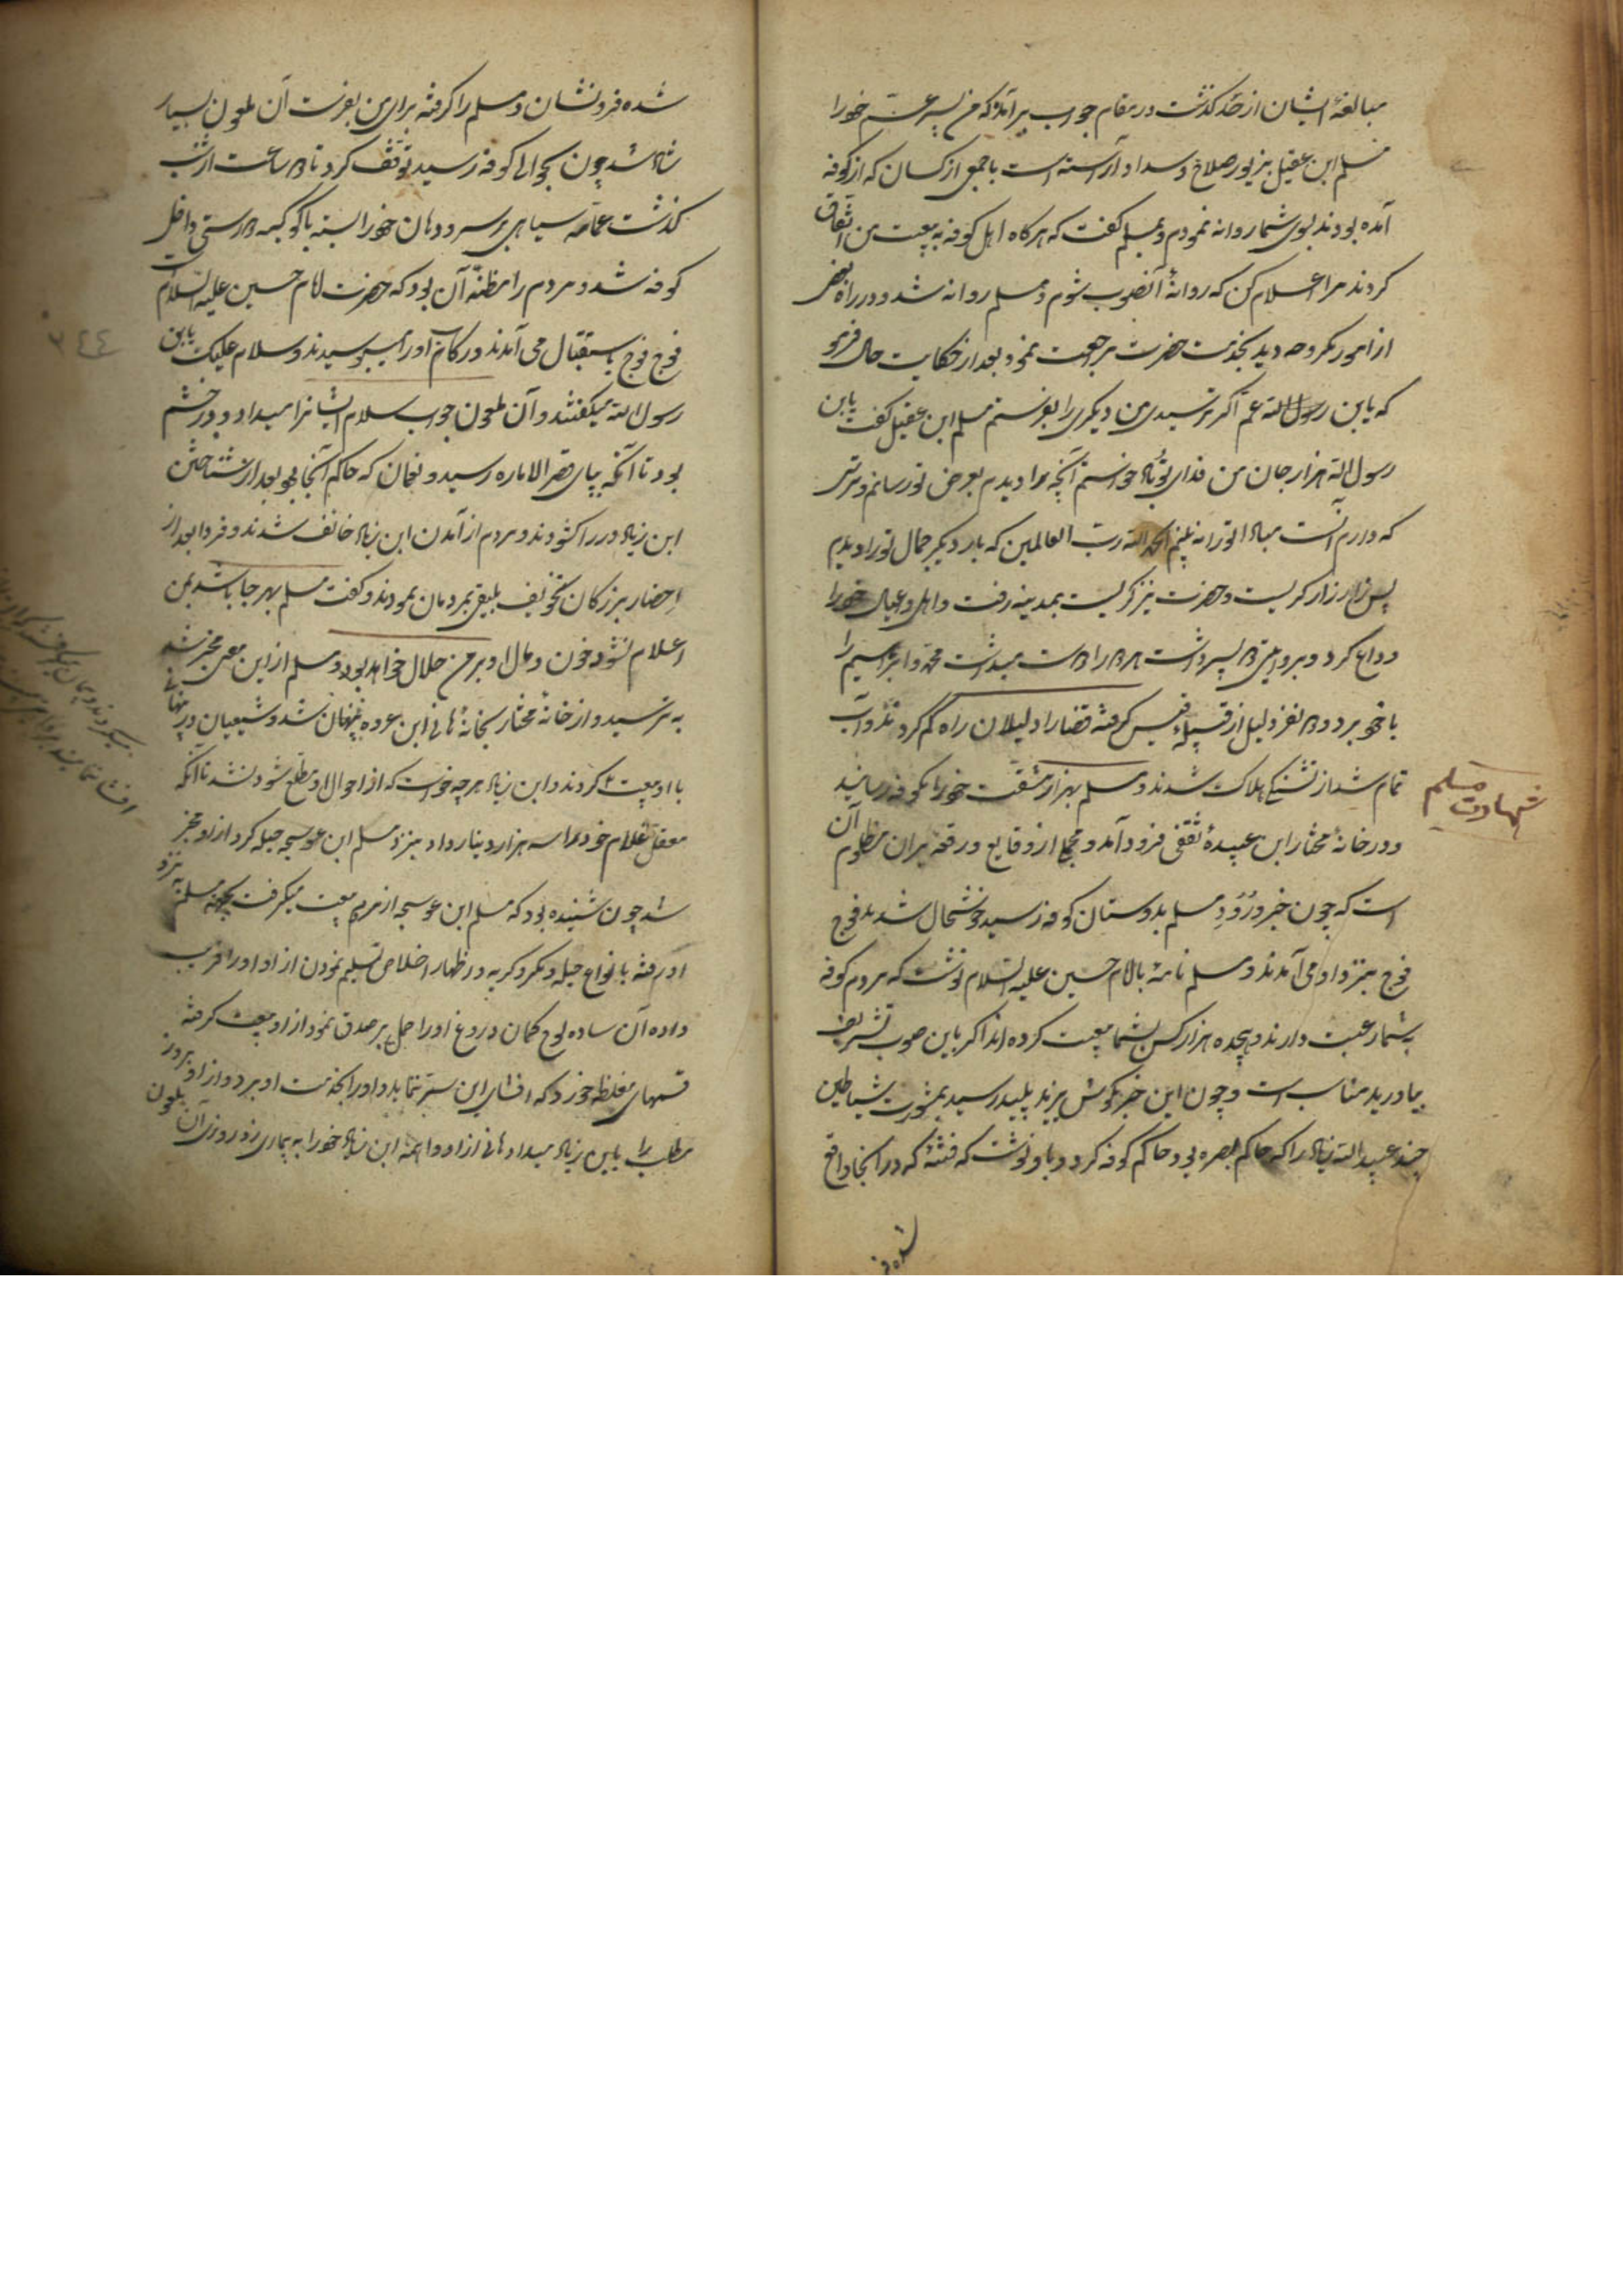 مبالغهٔ ایشان از حد گذشت در مقام جواب برآمد که من پسر عم خود را
مسلم ابن عقیل بزیور صلاح و سداد آراسته است با جمعی از کسان که از کوفه
آمده بودند بسوی شما روانه نمودم و بمسلم گفت که هرگاه اهل کوفه به بیعت من اتفاق
کردند مرا اعلام کن که روانهٔ آنصوب شوم و مسلم روانه شد و در راه بعض
از امور مکروهه دید بخدمت حضرت مراجعت نمود بعد از حکایت حال فرمود
که یابن عم اگر ترسیدی من دیگری را بفرستم مسلم ابن عقیل گفت یابن
رسول الله هزار جان من فدای تو باد خواستم آنچه را دیدم بعرض تو رسانم و ترسی
که دارم آنست مبادا ترا نه بینم الحمد لله رب العالمین که بار دیگر جمال تو را دیدم
پس زار زار گریست و حضرت نیز گریست بمدینه رفت و اهل و عیال خود را
وداع کرد و بروایتی دو پسر داشت هر دو را دوست میداشت محمد و ابراهیم را
با خود برد و دو نفر دلیل از قبیلهٔ قیس گرفته قضا را دلیلان راه گم کردند و آب
تمام شد از تشنگی هلاک شدند و مسلم بهزار مشقت خود را بکوفه رسانید
شهادت مسلم
و در خانهٔ مختار ابن عبیدهٔ ثقفی فرود آمد و مجمل از وقایع و رفتن بر آن مظلوم آن
است که چون خبر ورود مسلم بدوستان کوفه رسید خوشحال شدند فوج
فوج بنزد او می آمدند و مسلم نامهٔ بامام حسین علیه السلام نوشت که مردم کوفه
بشما رغبت دارند و هیجده هزار کس بشما بیعت کرده اند اگر باین صوب تشریف
بیاورید مناسب است و چون این خبر بگوش یزید پلید رسید بمشورت شیاطین
چند عبید الله زیاد را که حاکم بصره بود حاکم کوفه کرد و باو نوشت که فتنهٔ که در آنجا واقع
شده فرو
شده فرو نشان و مسلم را گرفته برای من بفرست آن ملعون بسیار
شاد شد چون بحوالی کوفه رسید توقف کرد تا دو ساعت از شب
گذشت عمامهٔ سیاهی بر سر و دهان خود را بسته با کوکبه و درستی داخل
کوفه شد و مردم را مظنهٔ آن بود که حضرت امام حسین علیه السلام است
فوج فوج باستقبال می آمدند و رکاب او را میبوسیدند و سلام علیک یابن
رسول الله میگفتند و آن ملعون جواب سلام ایشانرا میداد و در خشم
بود تا آنکه بپای قصر الاماره رسید و نعمان که حاکم آنجا بود بعد از شناختن
ابن زیاد در را گشودند و مردم از آمدن ابن زیاد خائف شدند و فردا بعد از
احضار بزرگان تخویف بلیغ بمردمان نمودند و گفت مسلم بهر جا باشد بمن
اعلام نشود خون و مال او بر من حلال خواهد بود و مسلم از این معنی مخبر شد
به ترسید و از خانهٔ مختار بخانهٔ هانی ابن عروه پنهان شد و شیعیان در پنهانی
با او بیعت کردند و ابن زیاد هر چه خواست که از احوال او مطلع شود نشد تا آنکه
معقل غلام خود را سه هزار دینار داد و بنزد مسلم ابن عوسجه حیله کرد از او مخبر
شد چون شنیده بود که مسلم ابن عوسجه از مردم بیعت میگرفت بجهة مسلم بنزد
او رفته با انواع حیله و مکر و گریه و اظهار اخلاص تسلیم نمودن از او او را فریب
داده آن ساده لوح گمان دروغ او را حمل بر صدق نمود از او بیعت گرفته
قسمهای مغلظه خورد که افشای این سر ننماید و او را بخدمت او برد و از او هر روز
مطلب را باین زیاد میداد هانی از او واهمه ابن زیاد خود را به بیماری زد روزی آن ملعون